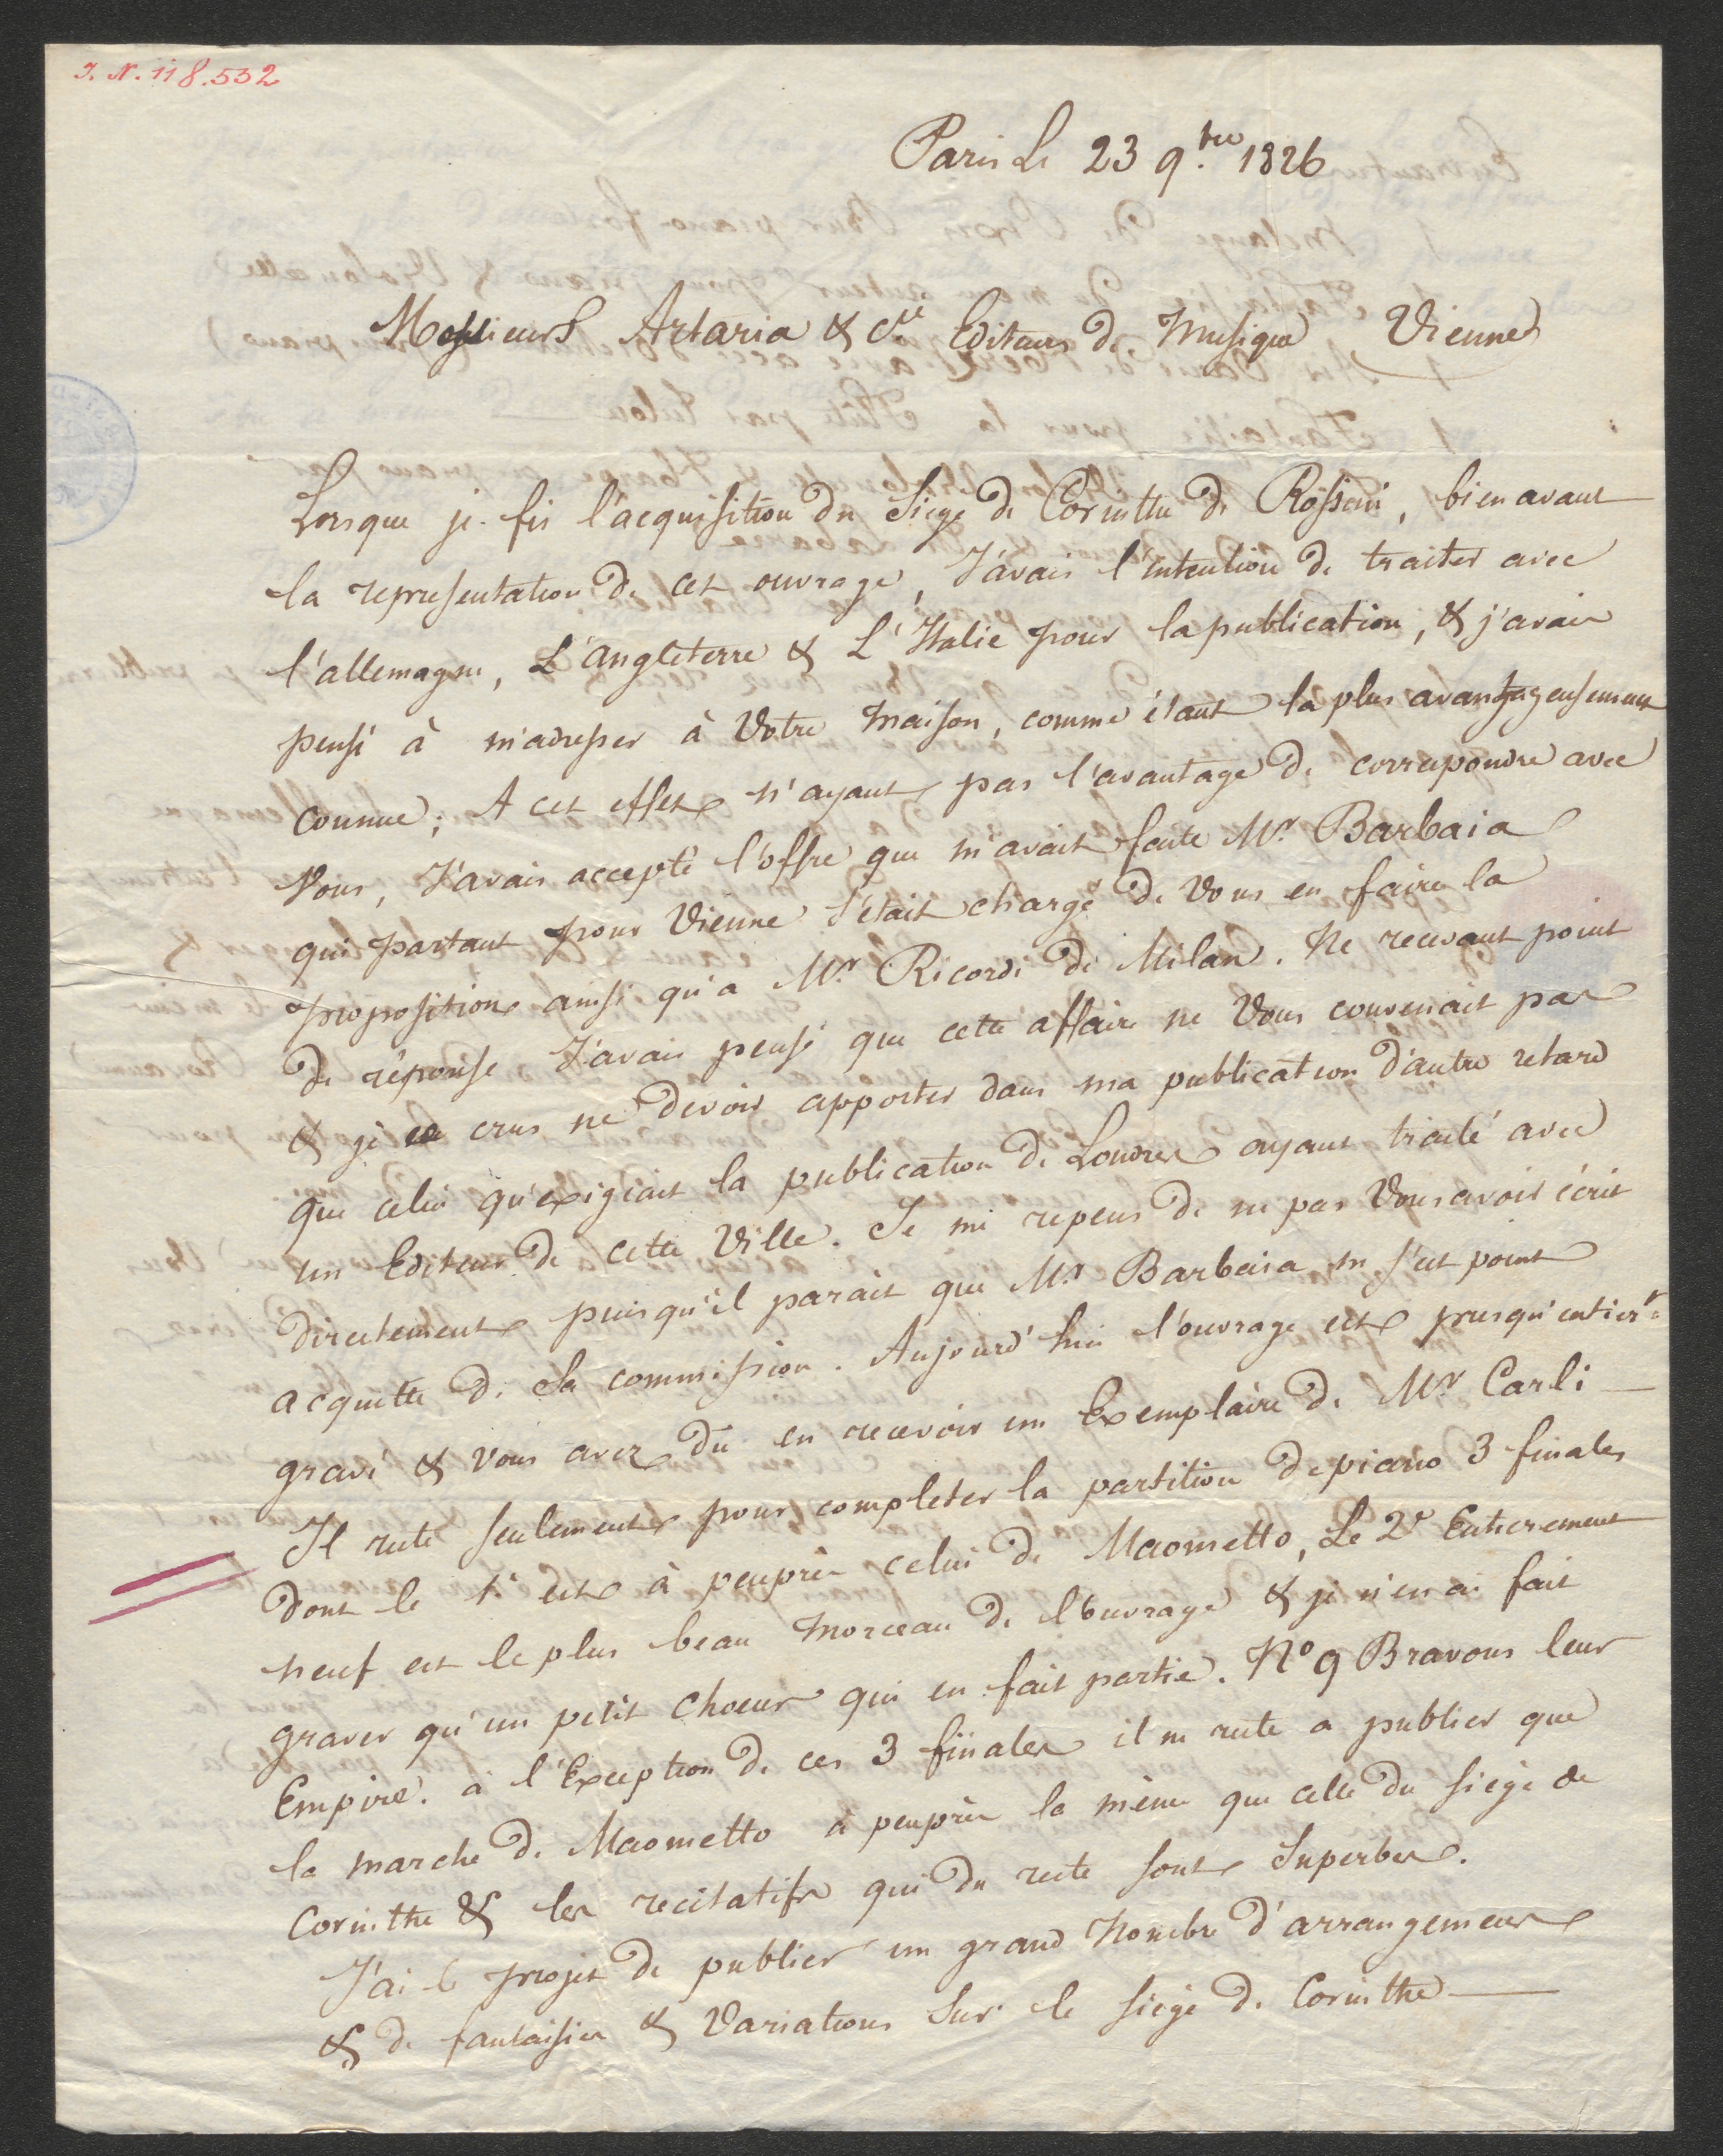 J. N. 118.532
Paris Le 23 9.bre 1826
Messieurs Artaria & Cie Editeurs de Musique Vienne
Lorsque je fis l'acquisition du Siege de Corinthe de Rossini, bien avant
la representation de cet ouvrage, J'avais l'intention de traiter avec
l'allemagne, L'angleterre & L'Italie pour la publication, & j'avais
pensé à m'adresser à Votre Maison, comme étant la plus avantageusement
connue; A cet effet n'ayant pas l'avantage de correspondre avec
Vous, J'avais accepté l'offre que m'avait faite Mr. Barbaia
qui partant pour Vienne s'était chargé de Vous en faire la
proposition ainsi qu'a Mr. Ricordi de Milan. Ne recevant point
de réponse J'avais pensé que cette affaire ne Vous convenait pas
& je crus ne devoir apporter dans ma publication d'autre retard
que celui qu'exigeait la publication de Londres ayant traité avec
un Editeur de cette Ville. Je me repens de ne pas Vous avoir écrit
directement puisqu'il parait que Mr. Barbaia ne s'est point
acquitté de Sa commission. Aujourd'hui l'ouvrage est presqu'entiert.
gravé & vous avez dû en recevoir un Exemplaire de Mr. Carli —
Il reste seulement pour completer la partition de piano 3 finales
dont le 1r est à peuprès celui de Maometto, Le 2e Entierement
neuf est le plus beau Morceau de l'ouvrage & je n'en ai fait
graver qu'un petit Choeur qui en fait partie. No 9 Bravons leur
Empire. à l'Exception de ces 3 finales il ne reste a publier que
la marche de Maometto à peuprès la même que celle du siege de
Corinthe & les recitatifs qui du reste sont Superbes.
J'ai le projet de publier un grand Nombre d'arrangemens
& de fantaisies & Variations Sur le siege de Corinthe —